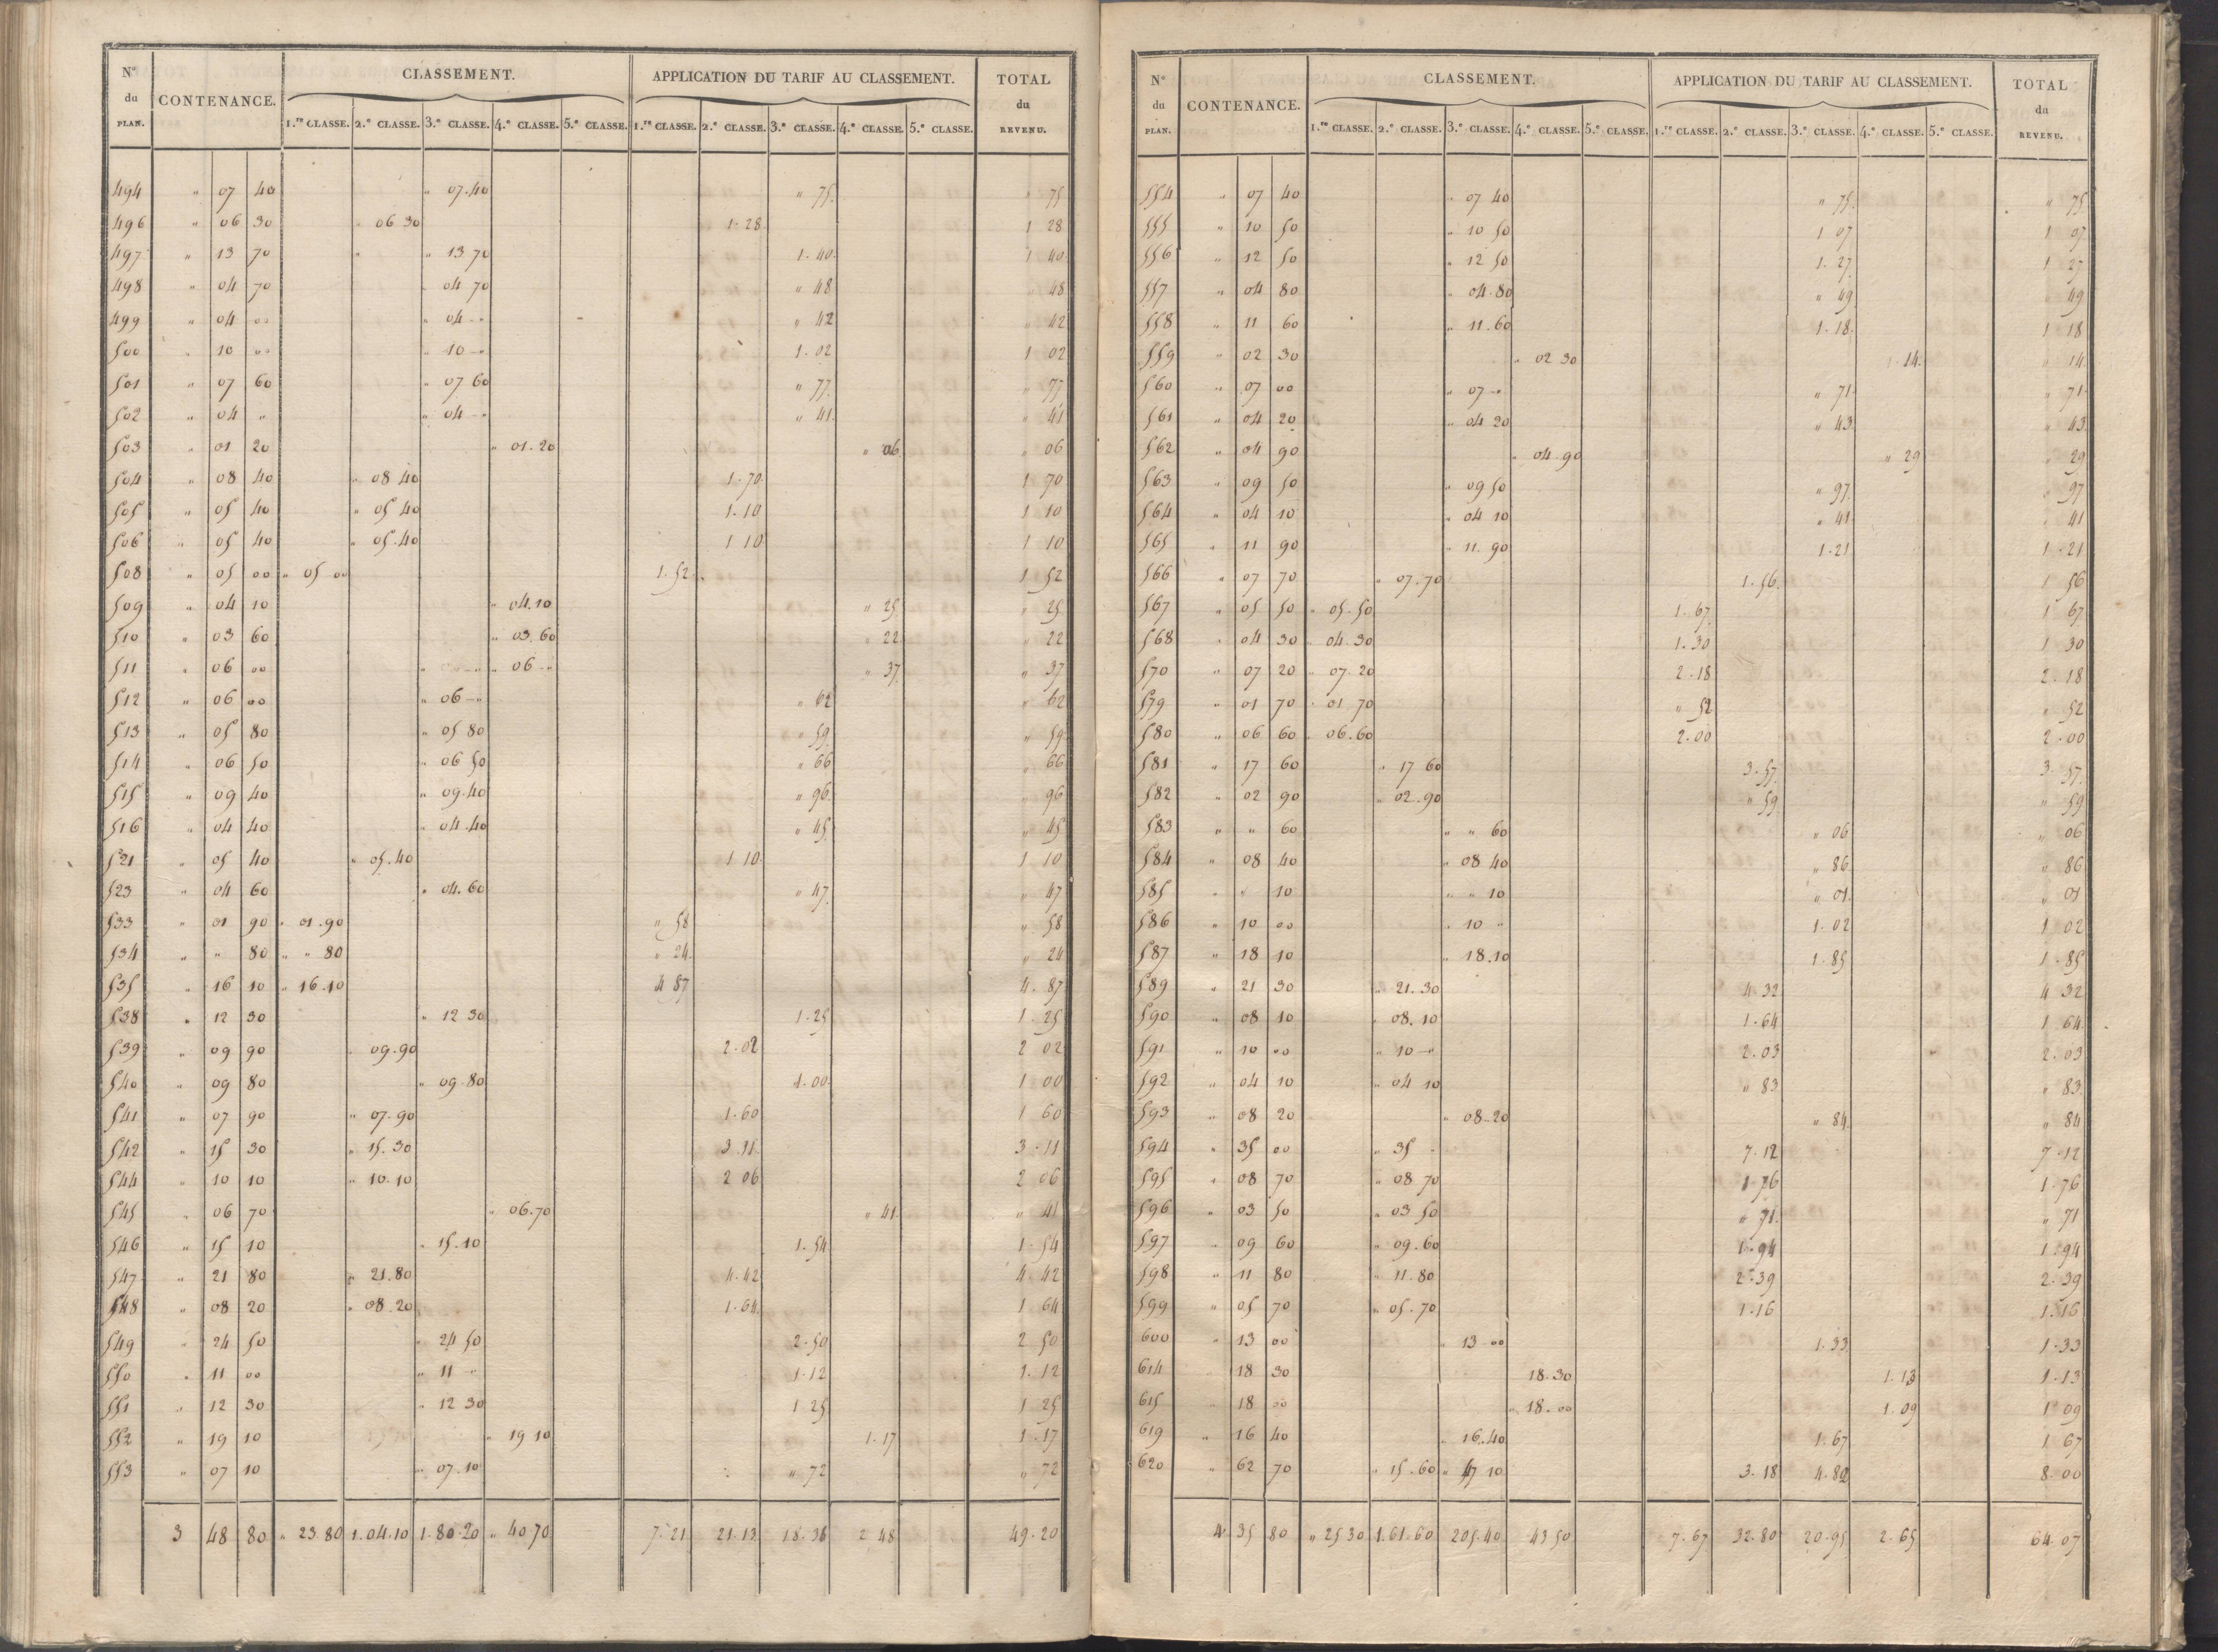 N° du PLAN. CONTENANCE. CLASSEMENT. APPLICATION DU TARIF AU CLASSEMENT. TOTAL du REVENU.
1.re CLASSE. 2.e CLASSE. 3.e CLASSE. 4.e CLASSE. 5.e CLASSE. 1.re CLASSE. 2.e CLASSE. 3.e CLASSE. 4.e CLASSE. 5.e CLASSE.
494 " 07 40 " 07.40 " 75. " 75
496 " 06 30 " 06 30 1.28. 1 28
497 " 13 70 " " 13 70 1.40. 1 40.
498 " 04 70 " 04 70 " 48 " 48
499 " 04 00 " 04 -" " 42 " 42
500 " 10 00 " 10 -" 1.02 1 02
501 " 07 60 " 07 60 " 77. " 77
502 " 04 " " 04 -" " 41. " 41
503 " 01 20 " 01.20 " 06. " 06
504 " 08 40 " 08 40 1.70. 1 70
505 " 05 40 " 05 40 1.10 1 10
506 " 05 40 " 05.40 1 10 1 10
508 " 05 00 " 05 00 1.52. 1 52
509 " 04 10 " 04.10 " 25 " 25
510 " 03 60 " 03.60 " 22 " 22
511 " 06 00 " 06 -" " 37 " 37
512 " 06 00 " 06 -" " 62 " 62
513 " 05 80 " 05 80 " 59. " 59.
514 " 06 50 " 06 50 " 66 " 66
515 " 09 40 " 09.40 " 96. " 96
516 " 04 40 " 04.40 " 45 " 45
521 " 05 40 " 05.40 1 10. 1 10
523 " 04 60 " 04.60 " 47. " 47
533 " 01 90 " 01.90 " 58 " 58
534 " " 80 " " 80 " 24. " 24
535 " 16 10 " 16.10 4 87 4.87
538 " 12 30 " 12 30 1.25 1.25
539 " 09 90 " 09.90 2.02 2 02
540 " 09 80 " 09.80 1.00. 1 00
541 " 07 90 " 07.90 1.60 1 60
542 " 15 30 " 15.30 3.11. 3.11
544 " 10 10 " 10.10 2 06 2 06
545 " 06 70 " 06.70 " 41. " 41
546 " 15 10 " 15.10 1.54 1.54
547 " 21 80 " 21.80 4.42 4 42
548 " 08 20 " 08.20 1.64. 1 64
549 " 24 50 " 24 50 2.50 2 50
550 " 11 00 " 11 -" 1.12 1.12
551 " 12 30 " 12 30 1 25 1 25
552 " 19 10 " 19 10 1.17 1.17
553 " 07 10 " 07.10 " 72 " 72
3 48 80 " 23.80 1.04.10 1.80.20 " 40 70 7.21 21.13. 18.36 2 48 49.20
N° du PLAN. CONTENANCE. CLASSEMENT. APPLICATION DU TARIF AU CLASSEMENT. TOTAL du REVENU.
1.re CLASSE. 2.e CLASSE. 3.e CLASSE. 4.e CLASSE. 5.e CLASSE. 1.re CLASSE. 2.e CLASSE. 3.e CLASSE. 4.e CLASSE. 5.e CLASSE.
554 " 07 40 " 07 40 " 75. " 75
555 " 10 50 " 10 50 1 07 1 07
556 " 12 50 " 12 50 1.27. 1 27
557 " 04 80 " 04.80 " 49 " 49
558 " 11 60 " 11.60 1.18. 1 18
559 " 02 30 " 02 30 " 14. " 14.
560 " 07 00 " 07 -" " 71. " 71.
561 " 04 20 " 04 20 " 43. " 43.
562 " 04 90 " 04.90 " 29 " 29
563 " 09 50 " 09 50 " 97. " 97
564 " 04 10 " 04 10 " 41. " 41
565 " 11 90 " 11.90 1.21 1.21
566 " 07 70 " 07.70 1.56. 1 56
567 " 05 50 " 05.50 1.67. 1 67.
568 " 04 30 " 04.30 1.30 1 30
570 " 07 20 " 07.20 2.18 2.18
579 " 01 70 " 01.70 " 52 " 52
580 " 06 60 " 06.60 2.00 2.00
581 " 17 60 " 17 60 3.57. 3 57.
582 " 02 90 " 02.90 " 59. " 59
583 " " 60 " " 60 " 06 " 06
584 " 08 40 " 08 40 " 86. " 86
585 " " 10 " " 10 " 01. " 01
586 " 10 00 " 10 " 1.02 1 02
587 " 18 10 " 18.10 1.85 1.85
589 " 21 30 " 21.30 4.32 4 32
590 " 08 10 " 08.10 1.64 1 64.
591 " 10 00 " 10 -" 2.03 2.03
592 " 04 10 " 04 10 " 83 " 83.
593 " 08 20 " 08.20 " 84. " 84
594 " 35 00 " 35 - 7.12 7.12
595 " 08 70 " 08 70 1.76 1.76
596 " 03 50 " 03 50 " 71. " 71
597 " 09 60 " 09.60 1.94 1.94
598 " 11 80 " 11.80 2.39 2.39
599 " 05 70 " 05.70 1.16 1.16
600 " 13 00 " 13 -00 1.33. 1.33
614 18 30 18.30 1.13 1.13
615 " 18 00 " 18.00 1.09 1 09
619 " 16 40 " 16.40 1.67. 1 67
620 " 62 70 " 15.60 " 47 10 3.18 4.82 8.00
4. 35 80 " 25 30 1.61.60 205.40 43 50 7.67 32.80 20.95 2.65 64.07